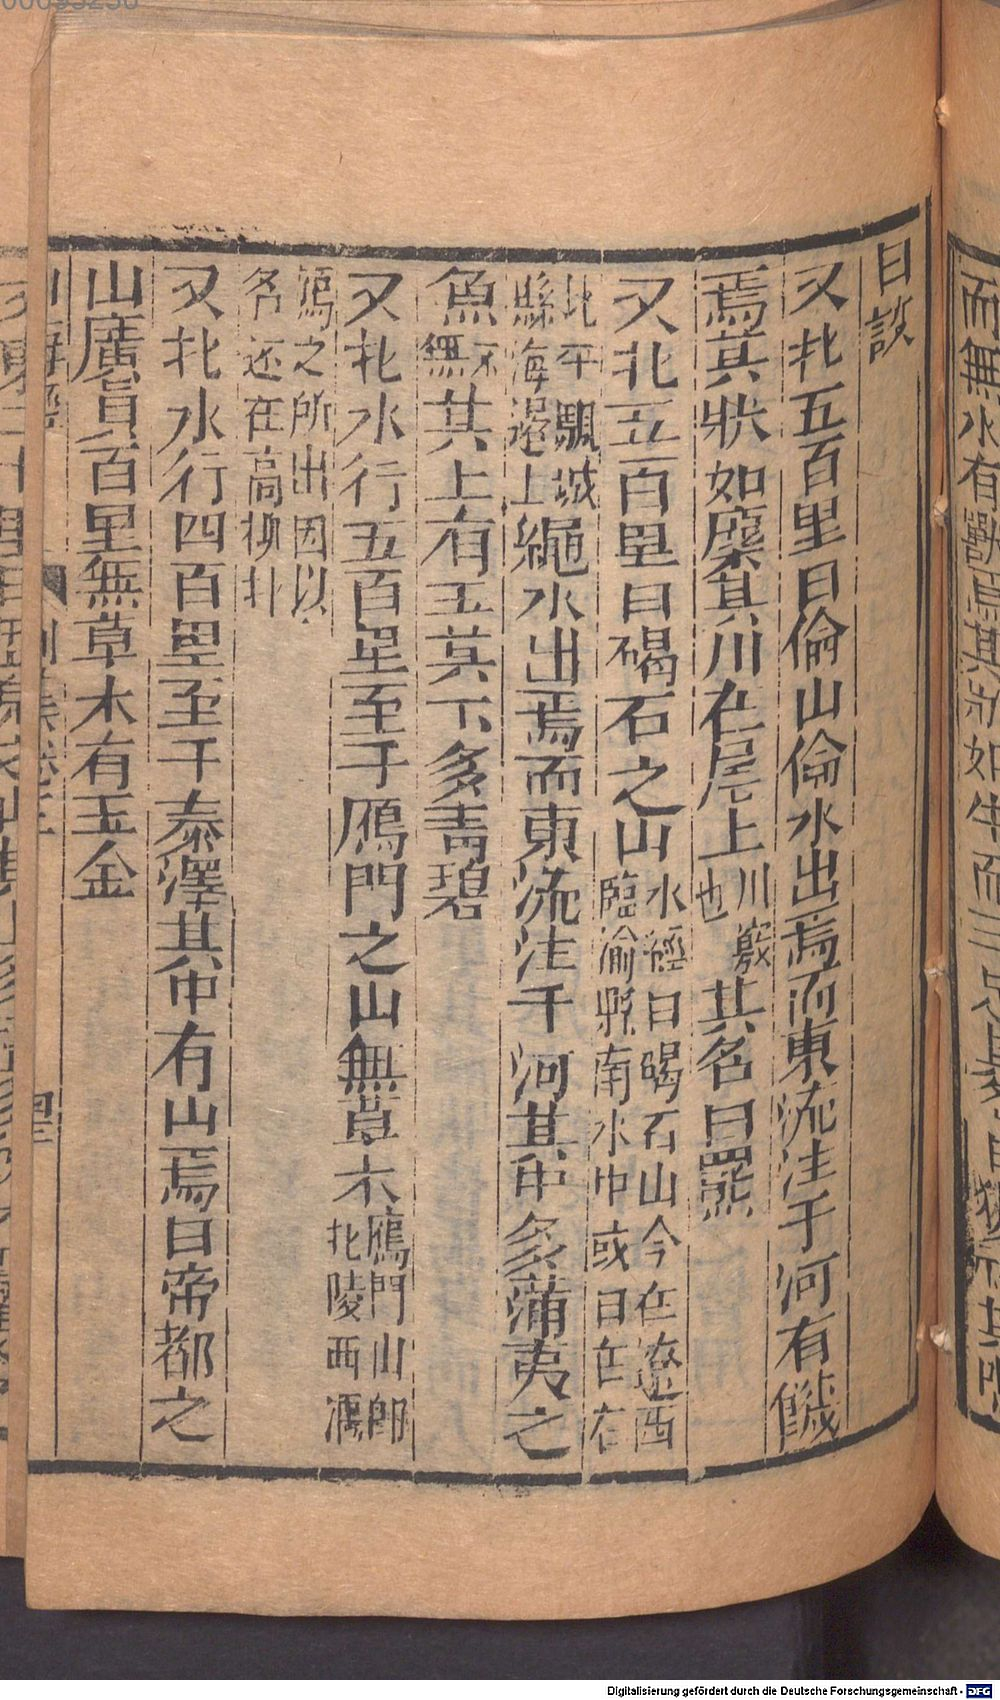 曰詨
又北五百里曰倫山倫水出焉而東流注于河有獸
焉其狀如麋其川在尾上川竅也其名曰羆
又北五百里曰碣石之山水經曰碣石山今在遼西臨渝縣南水中或曰在右
北平驪城縣海邊上繩水出焉而東流注于河其中多蒲夷之
魚無其上有玉其下多青碧
又北水行五百里至于鴈門之山無草木鴈門山即北陵西濕
鴈之所出因以名还在高柳北
又北水行四百里至于泰澤其中有山焉曰帝都之
山廣員百里無草木有玉金
而無水有獸焉其狀如牛而三足其名曰獂
Digitalisierung gefördert durch die Deutsche Forschungsgemeinschaft - DFG